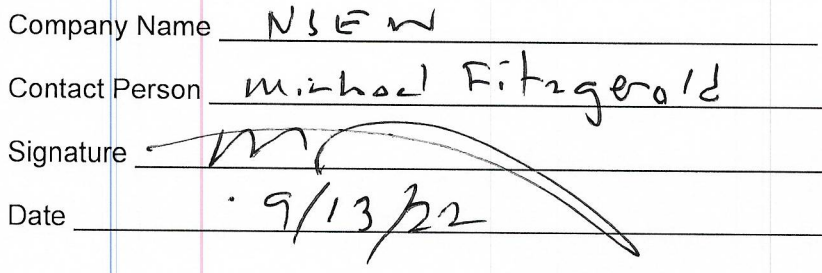 Company Name NSEW
Contact Person Michael Fitzgerald
Signature
Date 9/13/22